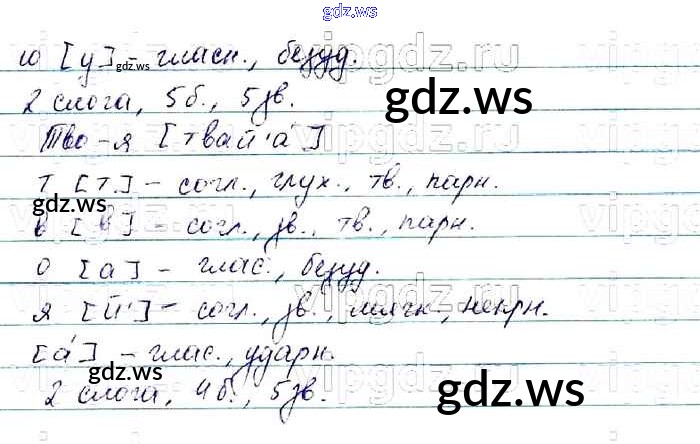 gdz.ws
ю [у] – гласн., безуд.
gdz.ws
2 слога, 5б., 5зв.
gdz.ws
Тво-я [твай'а́]
т [т] – согл., глух., тв., парн.
gdz.ws
в [в] – согл., зв., тв., парн.
о [а] – глас., безуд.
я [й'] – согл., зв., мягк., непрн.
[а́] – глас., ударн.
gdz.ws
2 слога, 4б., 5зв.
gdz.ws
vipgdz.ru